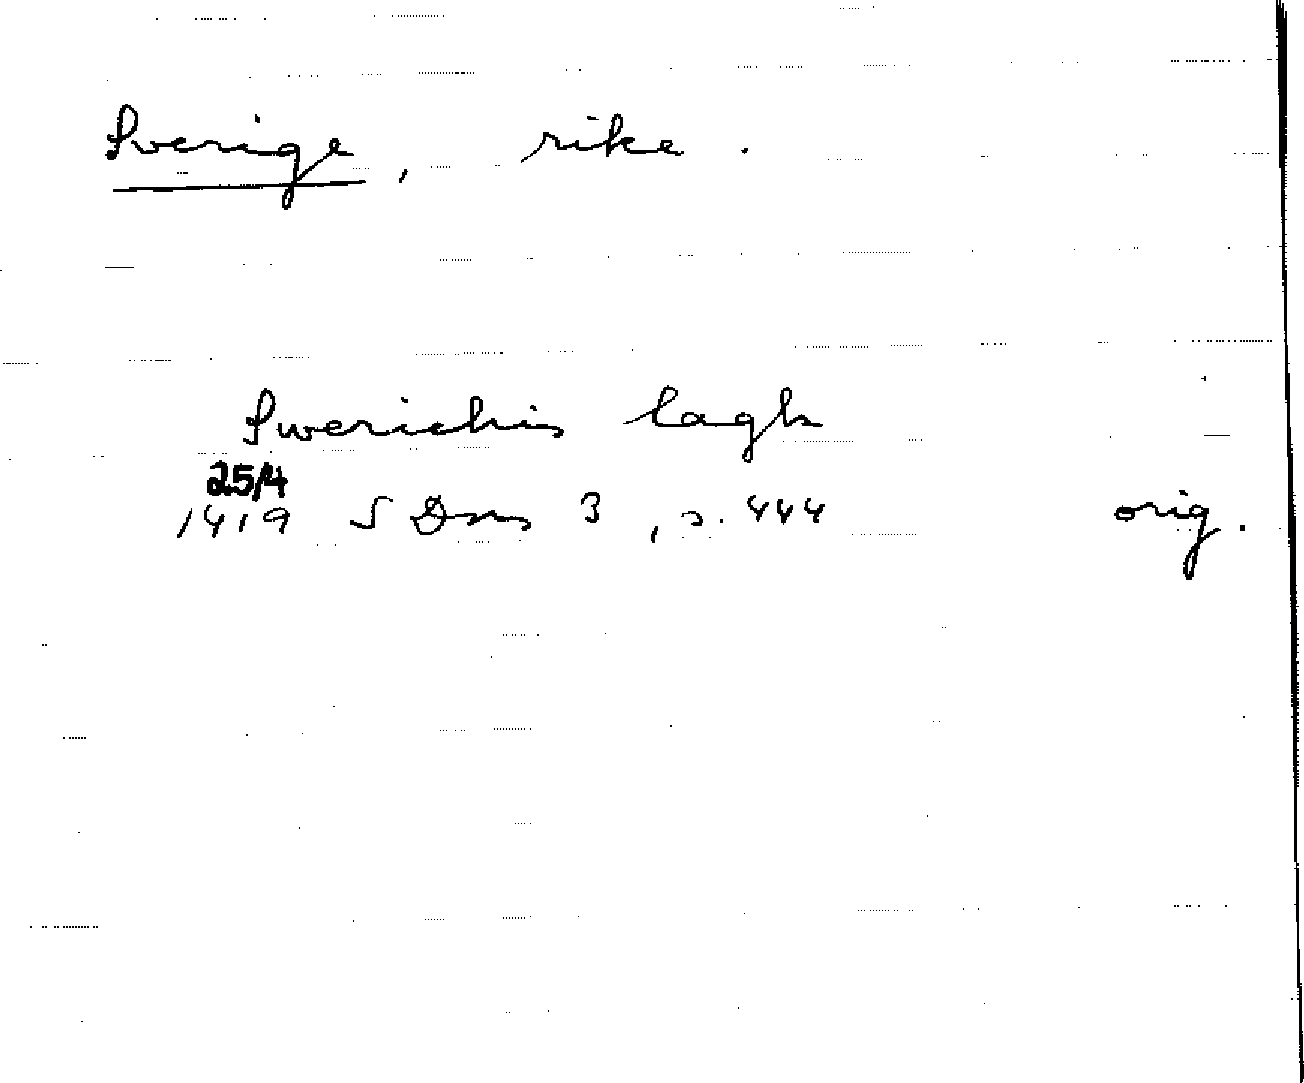 Sverige, rike.
Swerichis lagh
25/4
1419 SDns 3, s. 444 orig.